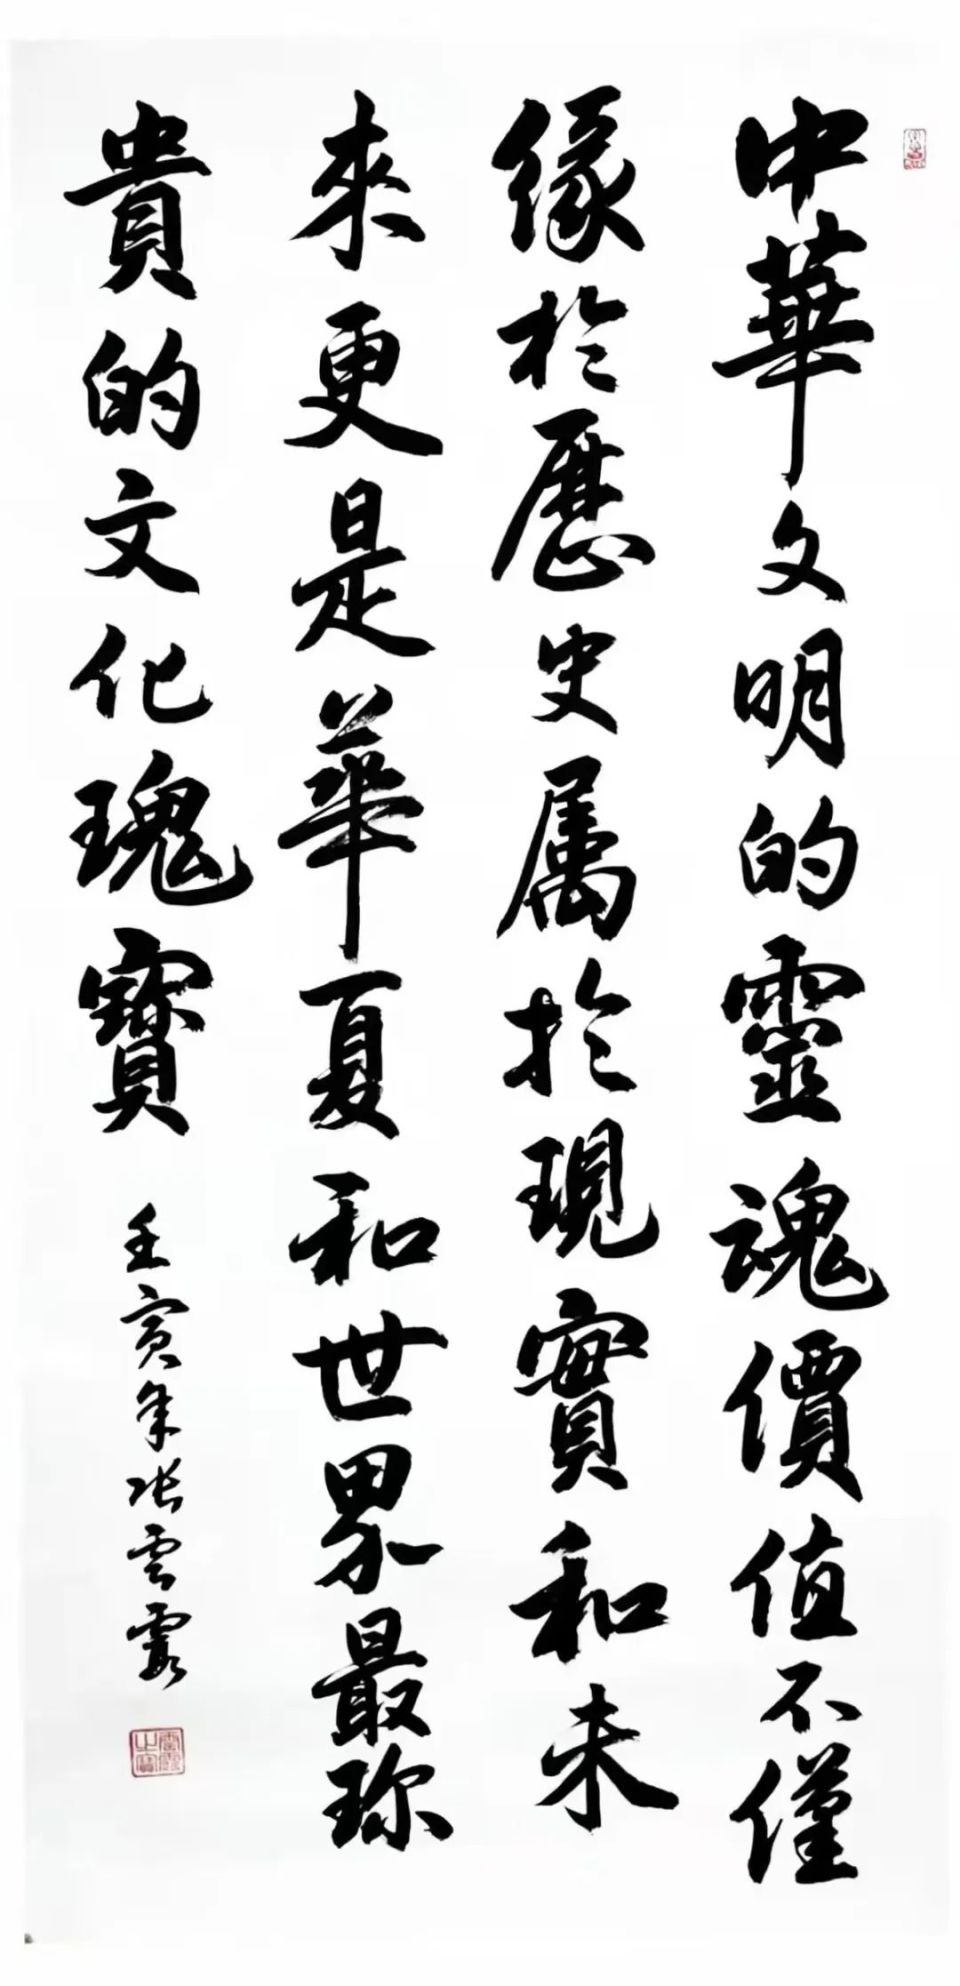 中華文明的靈魂價值不僅
緣於歷史属於現實和未
來更是華夏和世界最珎
貴的文化瑰寳
壬寅年张雲霞